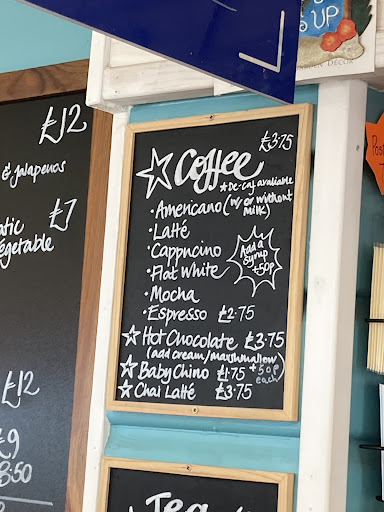 UP
£12
& Jalapenos
£7
atic
egetable
£12
£9
8.50
£3.75
☆ Coffee
★ De-caf avaliable
• Americano (w/ or without
milk)
• Latté
• Cappucino
• Flat White
• Mocha
• Espresso £2.75
Add a
syrup
+50p
☆ Hot Chocolate £3.75
(add cream/marshmallow)
+50p
each
☆ Baby Chino £1.75
☆ Chai Latté £3.75
Tea